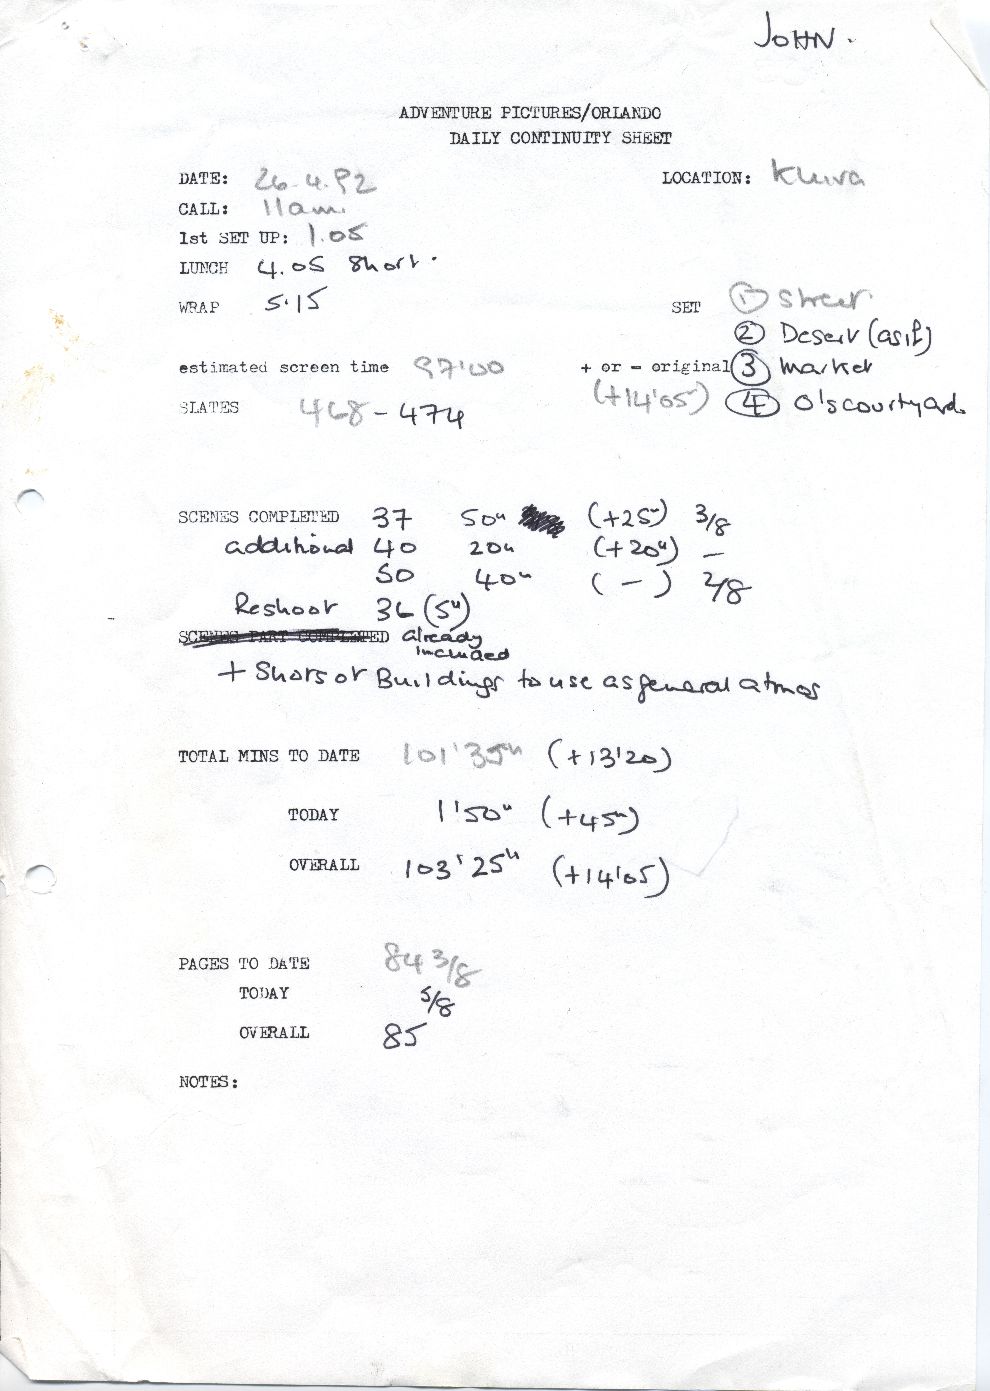 JOHN.
ADVENTURE PICTURES/ORLANDO
DAILY CONTINUITY SHEET
DATE: 26.4.92 LOCATION: Khiva
CALL: 11am.
1st SET UP: 1.05
LUNCH 4.05 Short.
WRAP 5.15 SET ① Street.
② Desert (as if)
estimated screen time 97'00 + or - original ③ market
SLATES 468-474 (+14'05) ④ O's courtyard.
SCENES COMPLETED 37 50" (+25") 3/8
additional 40 20" (+20") —
50 40" ( — ) 2/8
Reshoot 36 (5")
SCENES PART COMPLETED already
included
+ Shots of Buildings to use as general atmos
TOTAL MINS TO DATE 101'35" (+13'20)
TODAY 1'50" (+45")
OVERALL 103'25" (+14'05)
PAGES TO DATE 84 3/8
TODAY 5/8
OVERALL 85
NOTES: